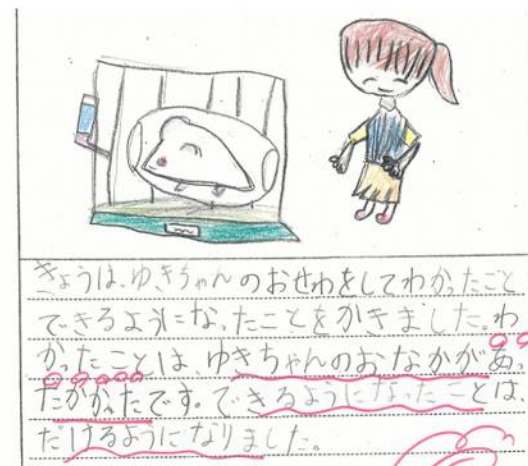 きょうは、ゆきちゃんのおせわをしてわかったこと
できるようになったことをかきました。わ
かったことは、ゆきちゃんのおなかがあっ
たかかったです。できるようになったことは、
だけるようになりました。